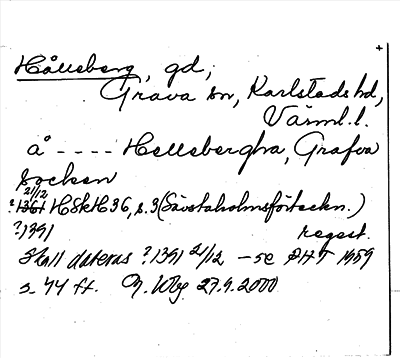 +
Hålleberg, gd;
Grava sn, Karlstads hd,
Värml. l.
å ---- Hellebergha, Grafva
socken
21/12
?1361 HSkH 36, s. 3 (Sävstaholmsförteckn.)
?1391 regest.
Skall dateras ?1391 21/12 - se PHT 1959
s. 44 ff. 27.9.2000